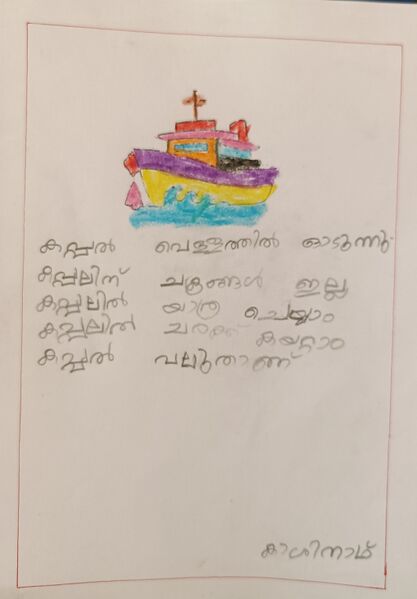 കപ്പൽ വെള്ളത്തിൽ ഓടുന്നു
കപ്പലിന് ചക്രങ്ങൾ ഇല്ല
കപ്പലിൽ യാത്ര ചെയ്യാം
കപ്പലിൽ ചരക്ക് കയറ്റാം
കപ്പൽ വലുതാണ്
കാശിനാഥ്